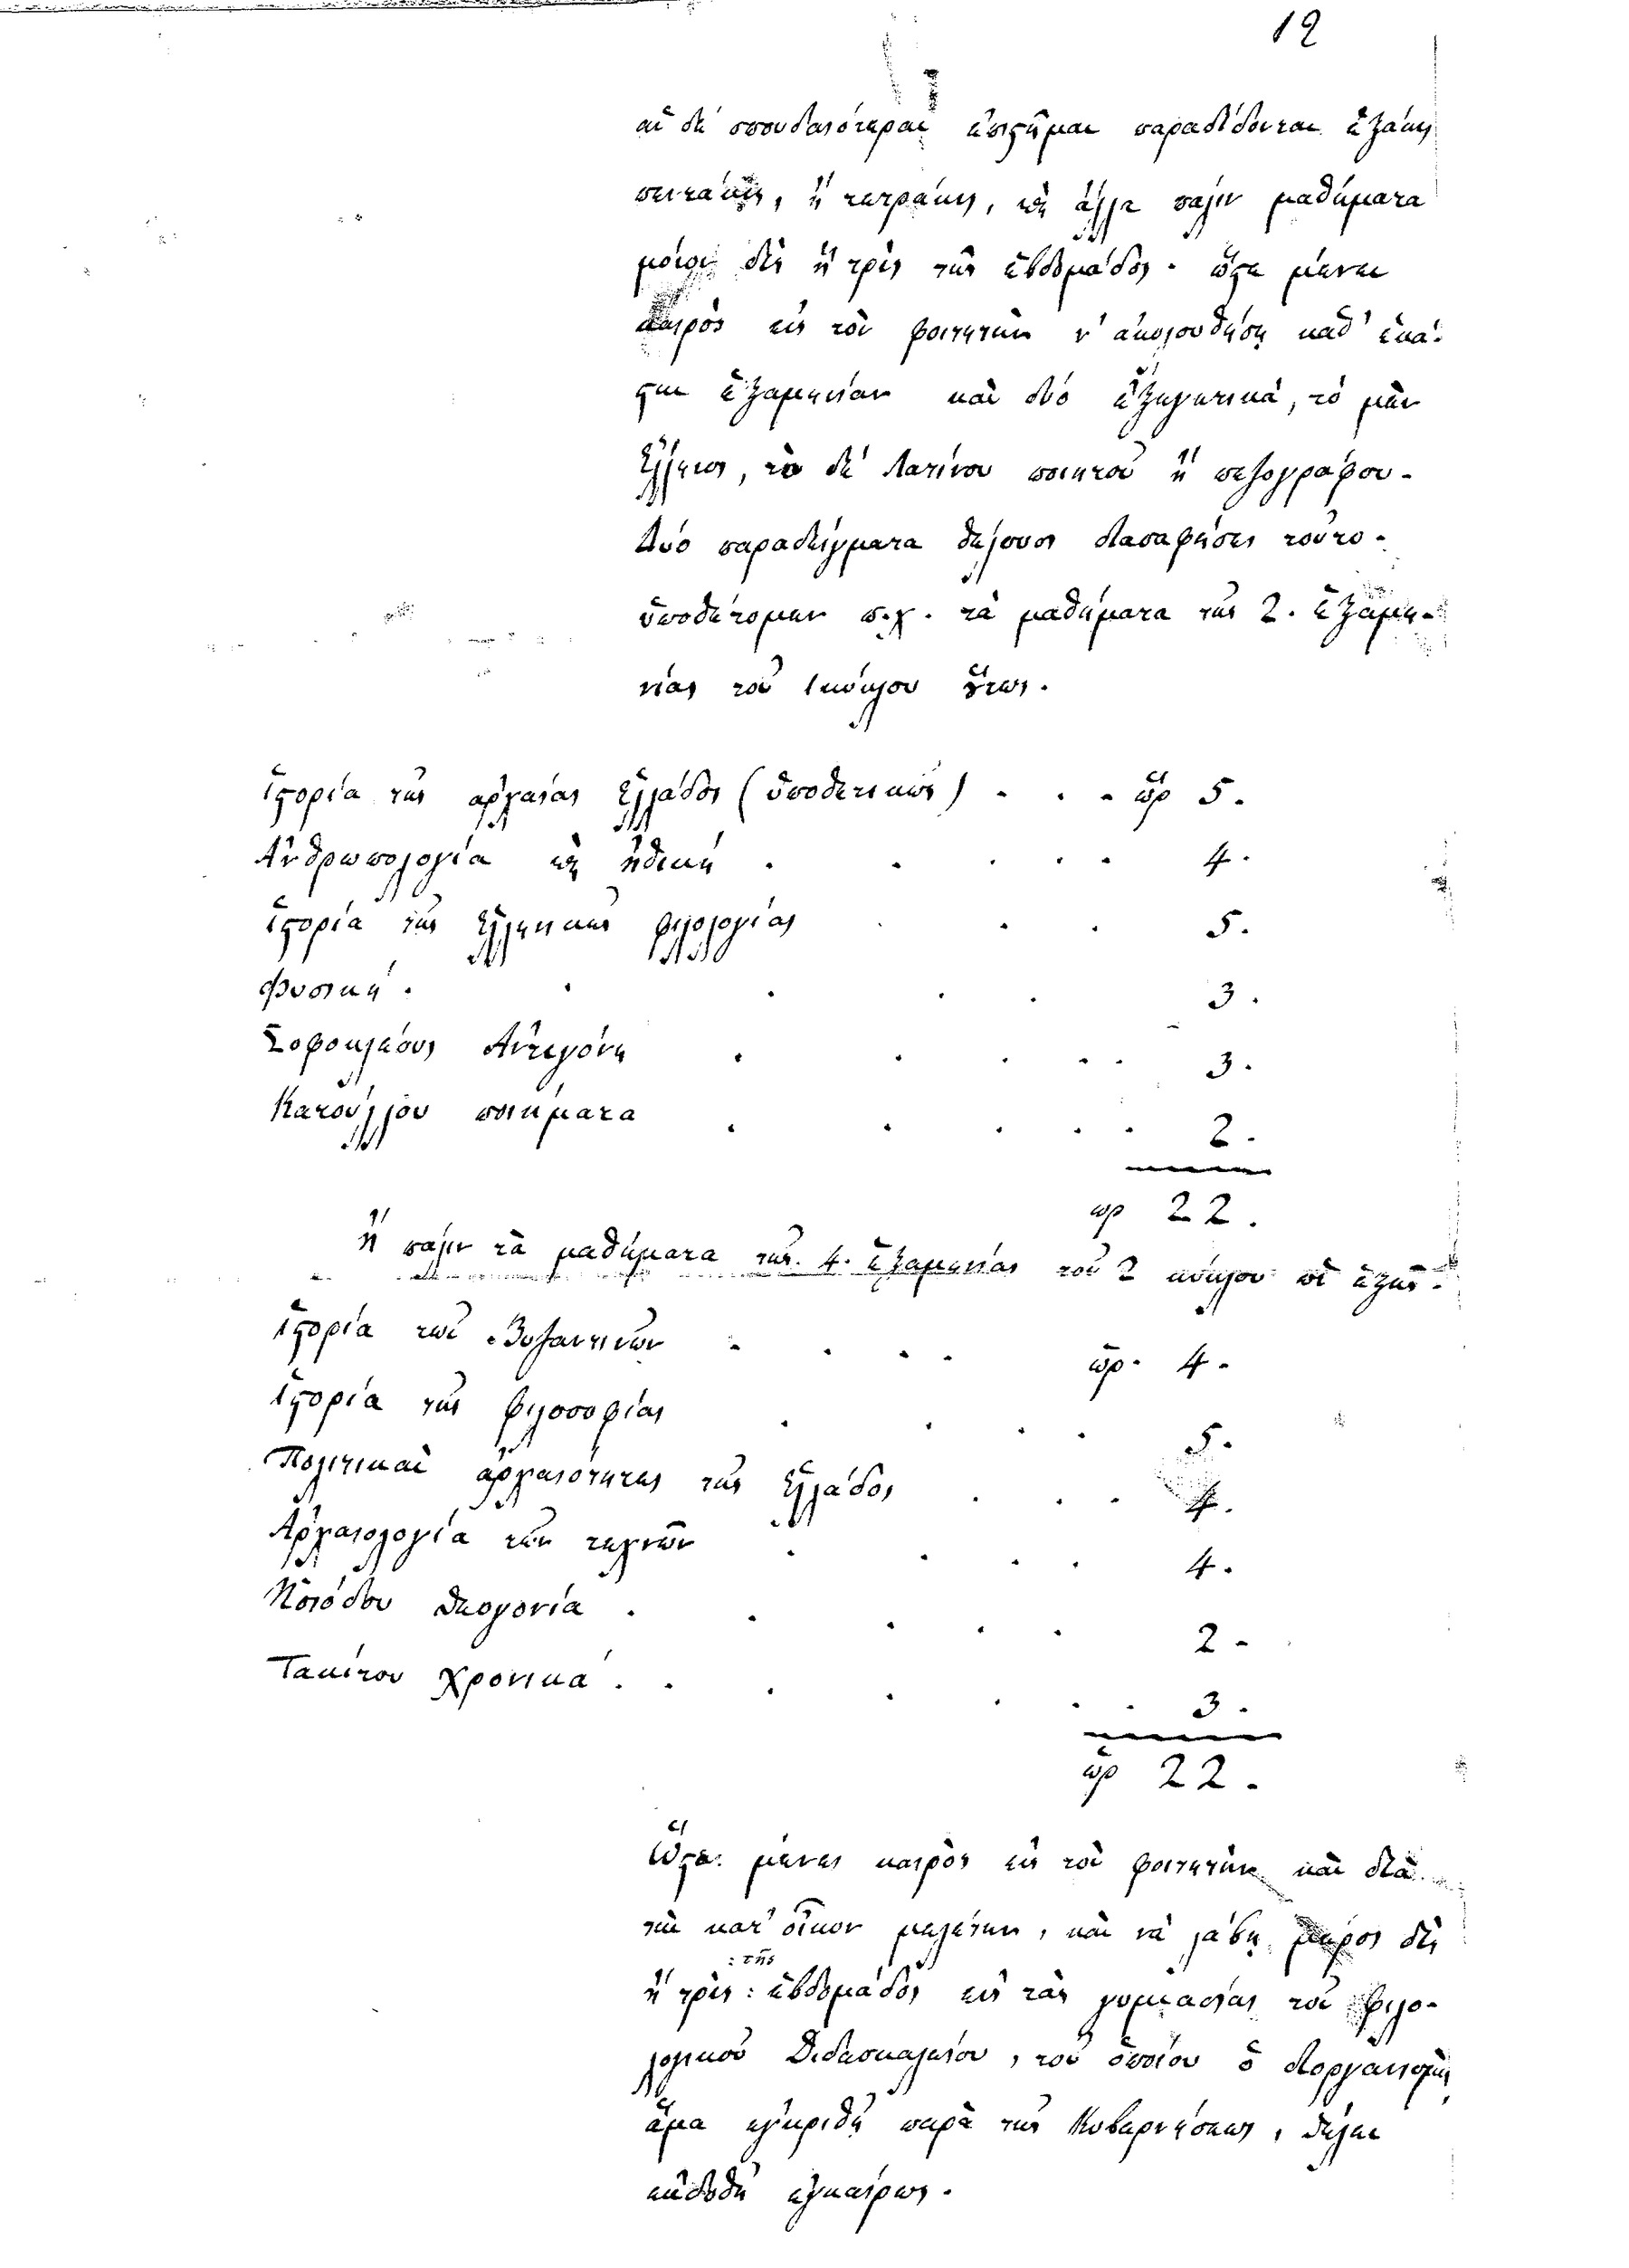 12
αἱ δὲ σπουδαιότεραι ἐπιστῆμαι παραδίδονται ἑξάκις
πεντάκις, ἢ τετράκις, καὶ ἄλλα πάλιν μαθήματα
μόνον δὶς ἢ τρὶς τῆς ἑβδομάδος· ὥστε μένει
καιρὸς εἰς τὸν φοιτητὴν ν' ἀκολουθήσῃ καθ' ἑκά-
στην ἑξαμηνίαν καὶ δύο ἐξηγητικά, τὸ μὲν
Ἕλληνος, τὸ δὲ Λατίνου ποιητοῦ ἢ πεζογράφου.
Δύο παραδείγματα θέλουσι διασαφήσει τοῦτο.
ὑποθέτομεν π.χ. τὰ μαθήματα τῆς 2. ἑξαμη-
νίας τοῦ 1 κύκλου οὕτως.
Ἱστορία τῆς ἀρχαίας Ἑλλάδος (ὑποθετικῶς) . . . ὧρ 5.
Ἀνθρωπολογία καὶ ἠθική . . . . . 4.
Ἱστορία τῆς Ἑλληνικῆς φιλολογίας . . . 5.
Φυσική . . . . . 3.
Σοφοκλέους Ἀντιγόνη . . . . . 3.
Κατούλλου ποιήματα . . . . . 2.
ὡρ 22.
ἢ πάλιν τὰ μαθήματα τῆς 4. ἑξαμηνίας τοῦ 2 κύκλου ὡς ἑξῆς.
Ἱστορία τῶν Βυζαντινῶν . . . . ὧρ. 4.
Ἱστορία τῆς φιλοσοφίας . . . . 5.
Πολιτικαὶ ἀρχαιότητες τῆς Ἑλλάδος . . . 4.
Ἀρχαιολογία τῶν τεχνῶν . . . . 4.
Ἡσιόδου Θεογονία . . . . . 2.
Τακίτου Χρονικά . . . . . . . 3.
ὧρ 22.
Ὥστε μένει καιρὸς εἰς τὸν φοιτητὴν καὶ διὰ
τὴν κατ' οἶκον μελέτην, καὶ νὰ λάβῃ μέρος δὶς
ἢ τρὶς : τῆς : ἑβδομάδος εἰς τὰς γυμνασίας τοῦ φιλο-
λογικοῦ Διδασκαλείου, τοῦ ὁποίου ὁ διοργανισμὸς,
ἅμα ἐγκριθῇ παρὰ τῆς Κυβερνήσεως, θέλει
ἐκδοθῆ ἐγκαίρως.